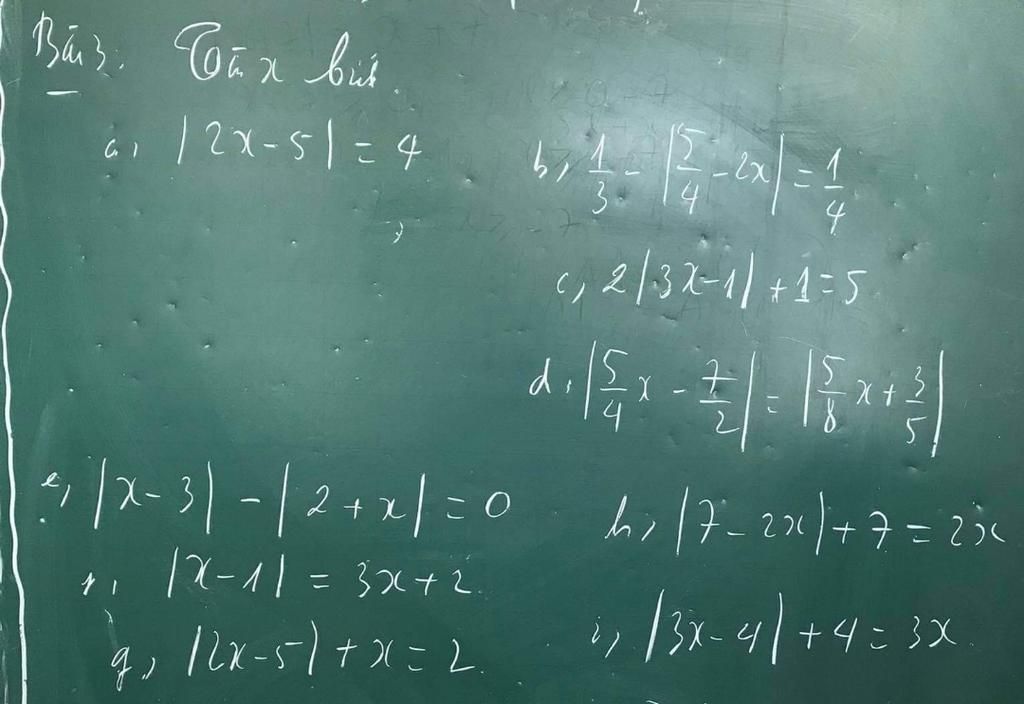 Bài 3: Tìm x biết.
a, |2x-5| = 4
b, 1/3 - |5/4 - 2x| = 1/4
c, 2|3x-1| + 1 = 5
d, |5/4 x - 7/2| = |5/8 x + 3/5|
e, |x-3| - |2+x| = 0
f, |x-1| = 3x+2.
g, |2x-5| + x = 2.
h, |7-2x| + 7 = 2x
i, |3x-4| + 4 = 3x